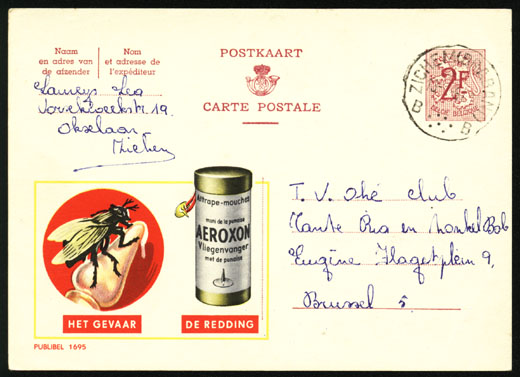 Naam
en adres van
de afzender
Nom
et adresse de
l'expéditeur
POSTKAART
CARTE POSTALE
ZICHEM
B
B
2F
Laureys Lea
19.
Okselaar
Zichem
Attrape-mouches
muni de la punaise
AEROXON
Vliegenvanger
met de punaise
HET GEVAAR
DE REDDING
PUBLIBEL 1695
T.V. Ohé club
Tante Ria en nonkel Bob
Eugène Flageyplein 9,
Brussel 5